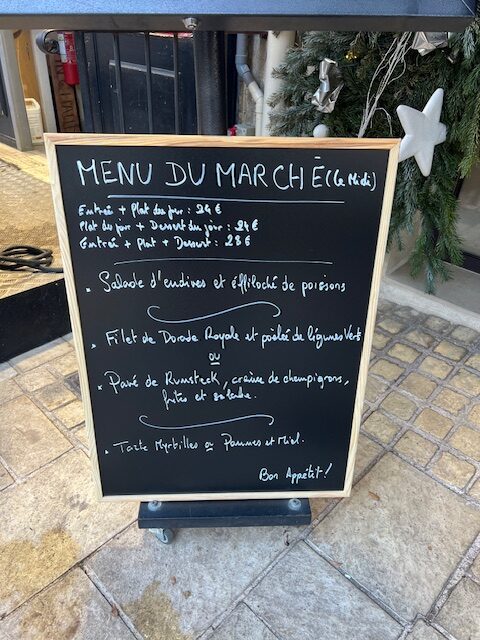 MENU DU MARCHÉ (Le Midi)
Entrée + Plat du jour : 24 €
Plat du jour + Dessert du jour : 24 €
Entrée + Plat + Dessert : 28 €
• Salade d'endives et éffiloché de poissons
• Filet de Dorade Royale et poêlée de légumes Verts
ou
• Pavé de Rumsteck, crème de champignons,
frites et salade.
• Tarte Myrtilles ou Pommes et Miel.
Bon Appétit !